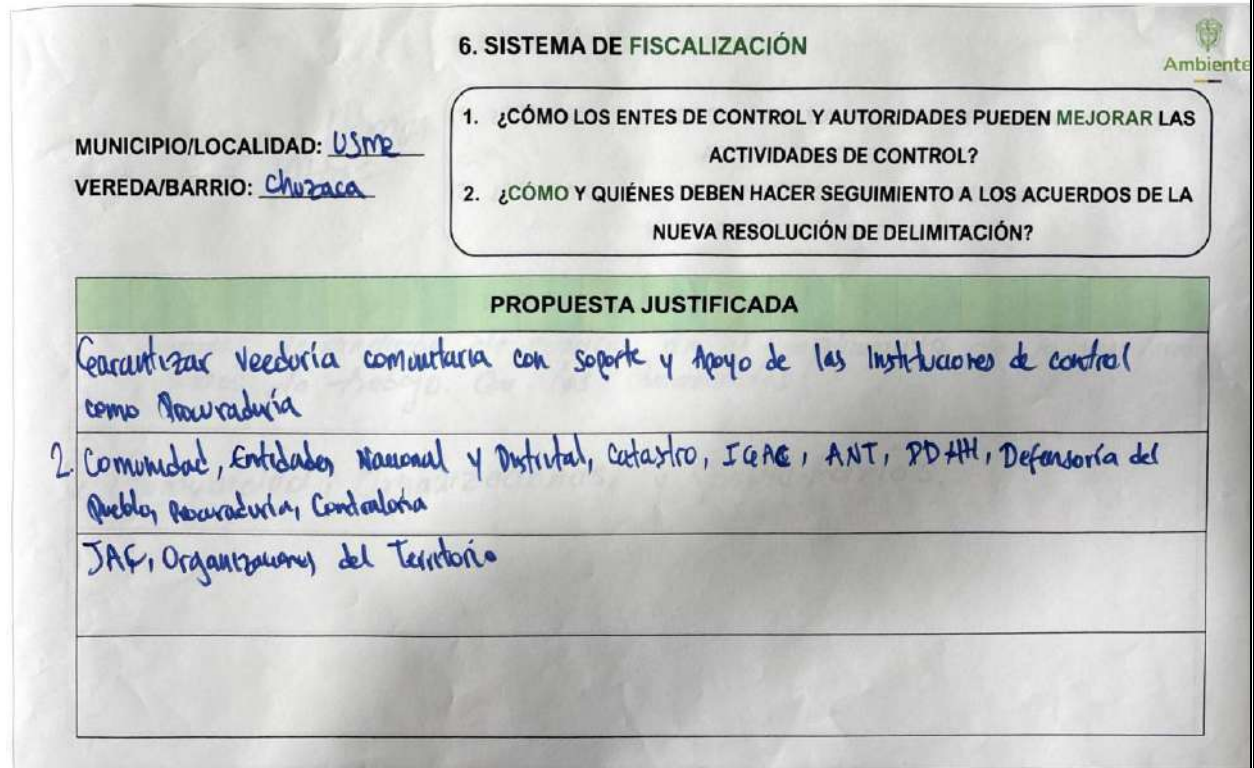 6. SISTEMA DE FISCALIZACIÓN
Ambiente
MUNICIPIO/LOCALIDAD: Usme
VEREDA/BARRIO: Chuzaca
1. ¿CÓMO LOS ENTES DE CONTROL Y AUTORIDADES PUEDEN MEJORAR LAS
ACTIVIDADES DE CONTROL?
2. ¿CÓMO Y QUIÉNES DEBEN HACER SEGUIMIENTO A LOS ACUERDOS DE LA
NUEVA RESOLUCIÓN DE DELIMITACIÓN?
PROPUESTA JUSTIFICADA
Garantizar Veeduría comunitaria con soporte y Apoyo de las Instituciones de control
como Procuraduría
2. Comunidad, Entidades Nacional y Distrital, Catastro, IGAC, ANT, DDHH, Defensoría del
Pueblo, Procuraduría, Contraloría
JAC, Organizaciones del Territorio